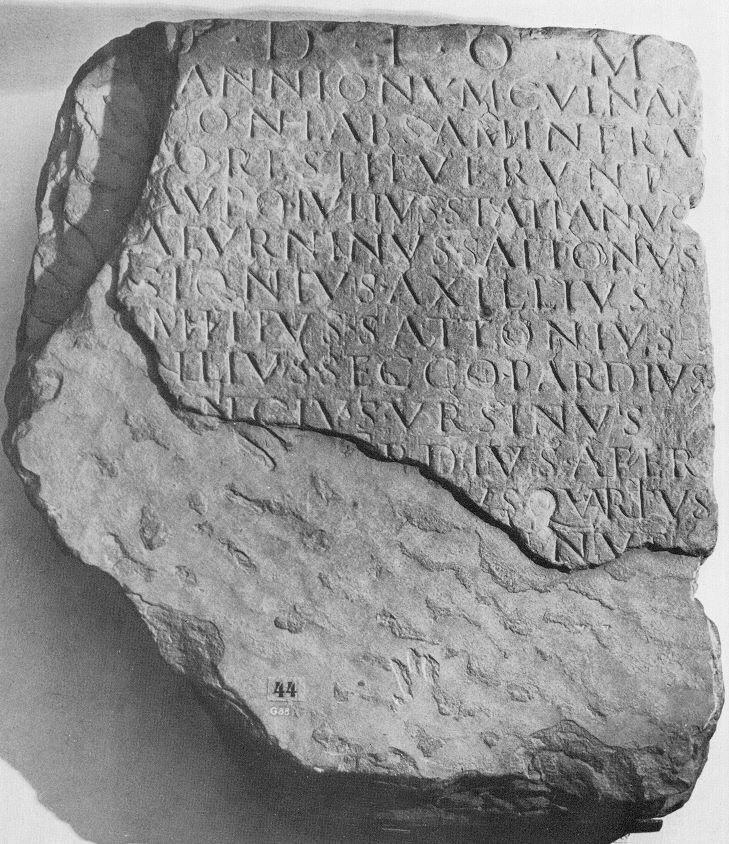 D · I · O · M
ANNIONVM CVLINAM
ONLABSAM INFRA
O RESTITVERVNT
IVLIVS STATIANVS
ATVRNINVS SATTONVS
AXILLIVS
SATTONIVS
ILLIVS SECCO PARDIVS
NICIVS VRSINVS
RDIVS APER
VS QVARTVS
NV
44